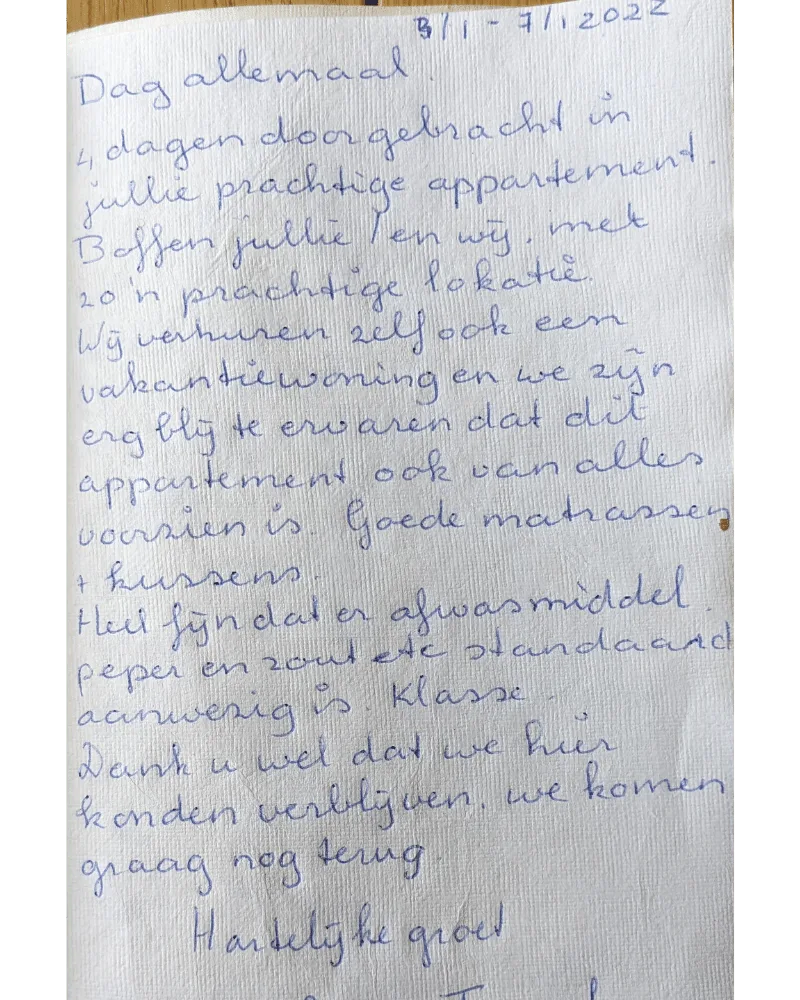 3/1 - 7/1 2022
Dag allemaal.
4 dagen doorgebracht in
jullie prachtige appartement.
Boffen jullie / en wij, met
zo'n prachtige lokatie.
Wij verhuren zelf ook een
vakantiewoning en we zijn
erg blij te ervaren dat dit
appartement ook van alles
voorzien is. Goede matrassen
+ kussens.
Heel fijn dat er afwasmiddel.
peper en zout etc standaard
aanwezig is. Klasse.
Dank u wel dat we hier
konden verblijven, we komen
graag nog terug.
Hartelijke groet